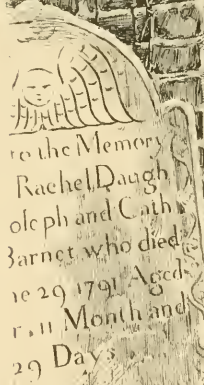 to the Memory
Rachel Daugh
oleph and Cath
Barnet who died
ne 29 1791 Aged
r. 11 Month and
29 Days